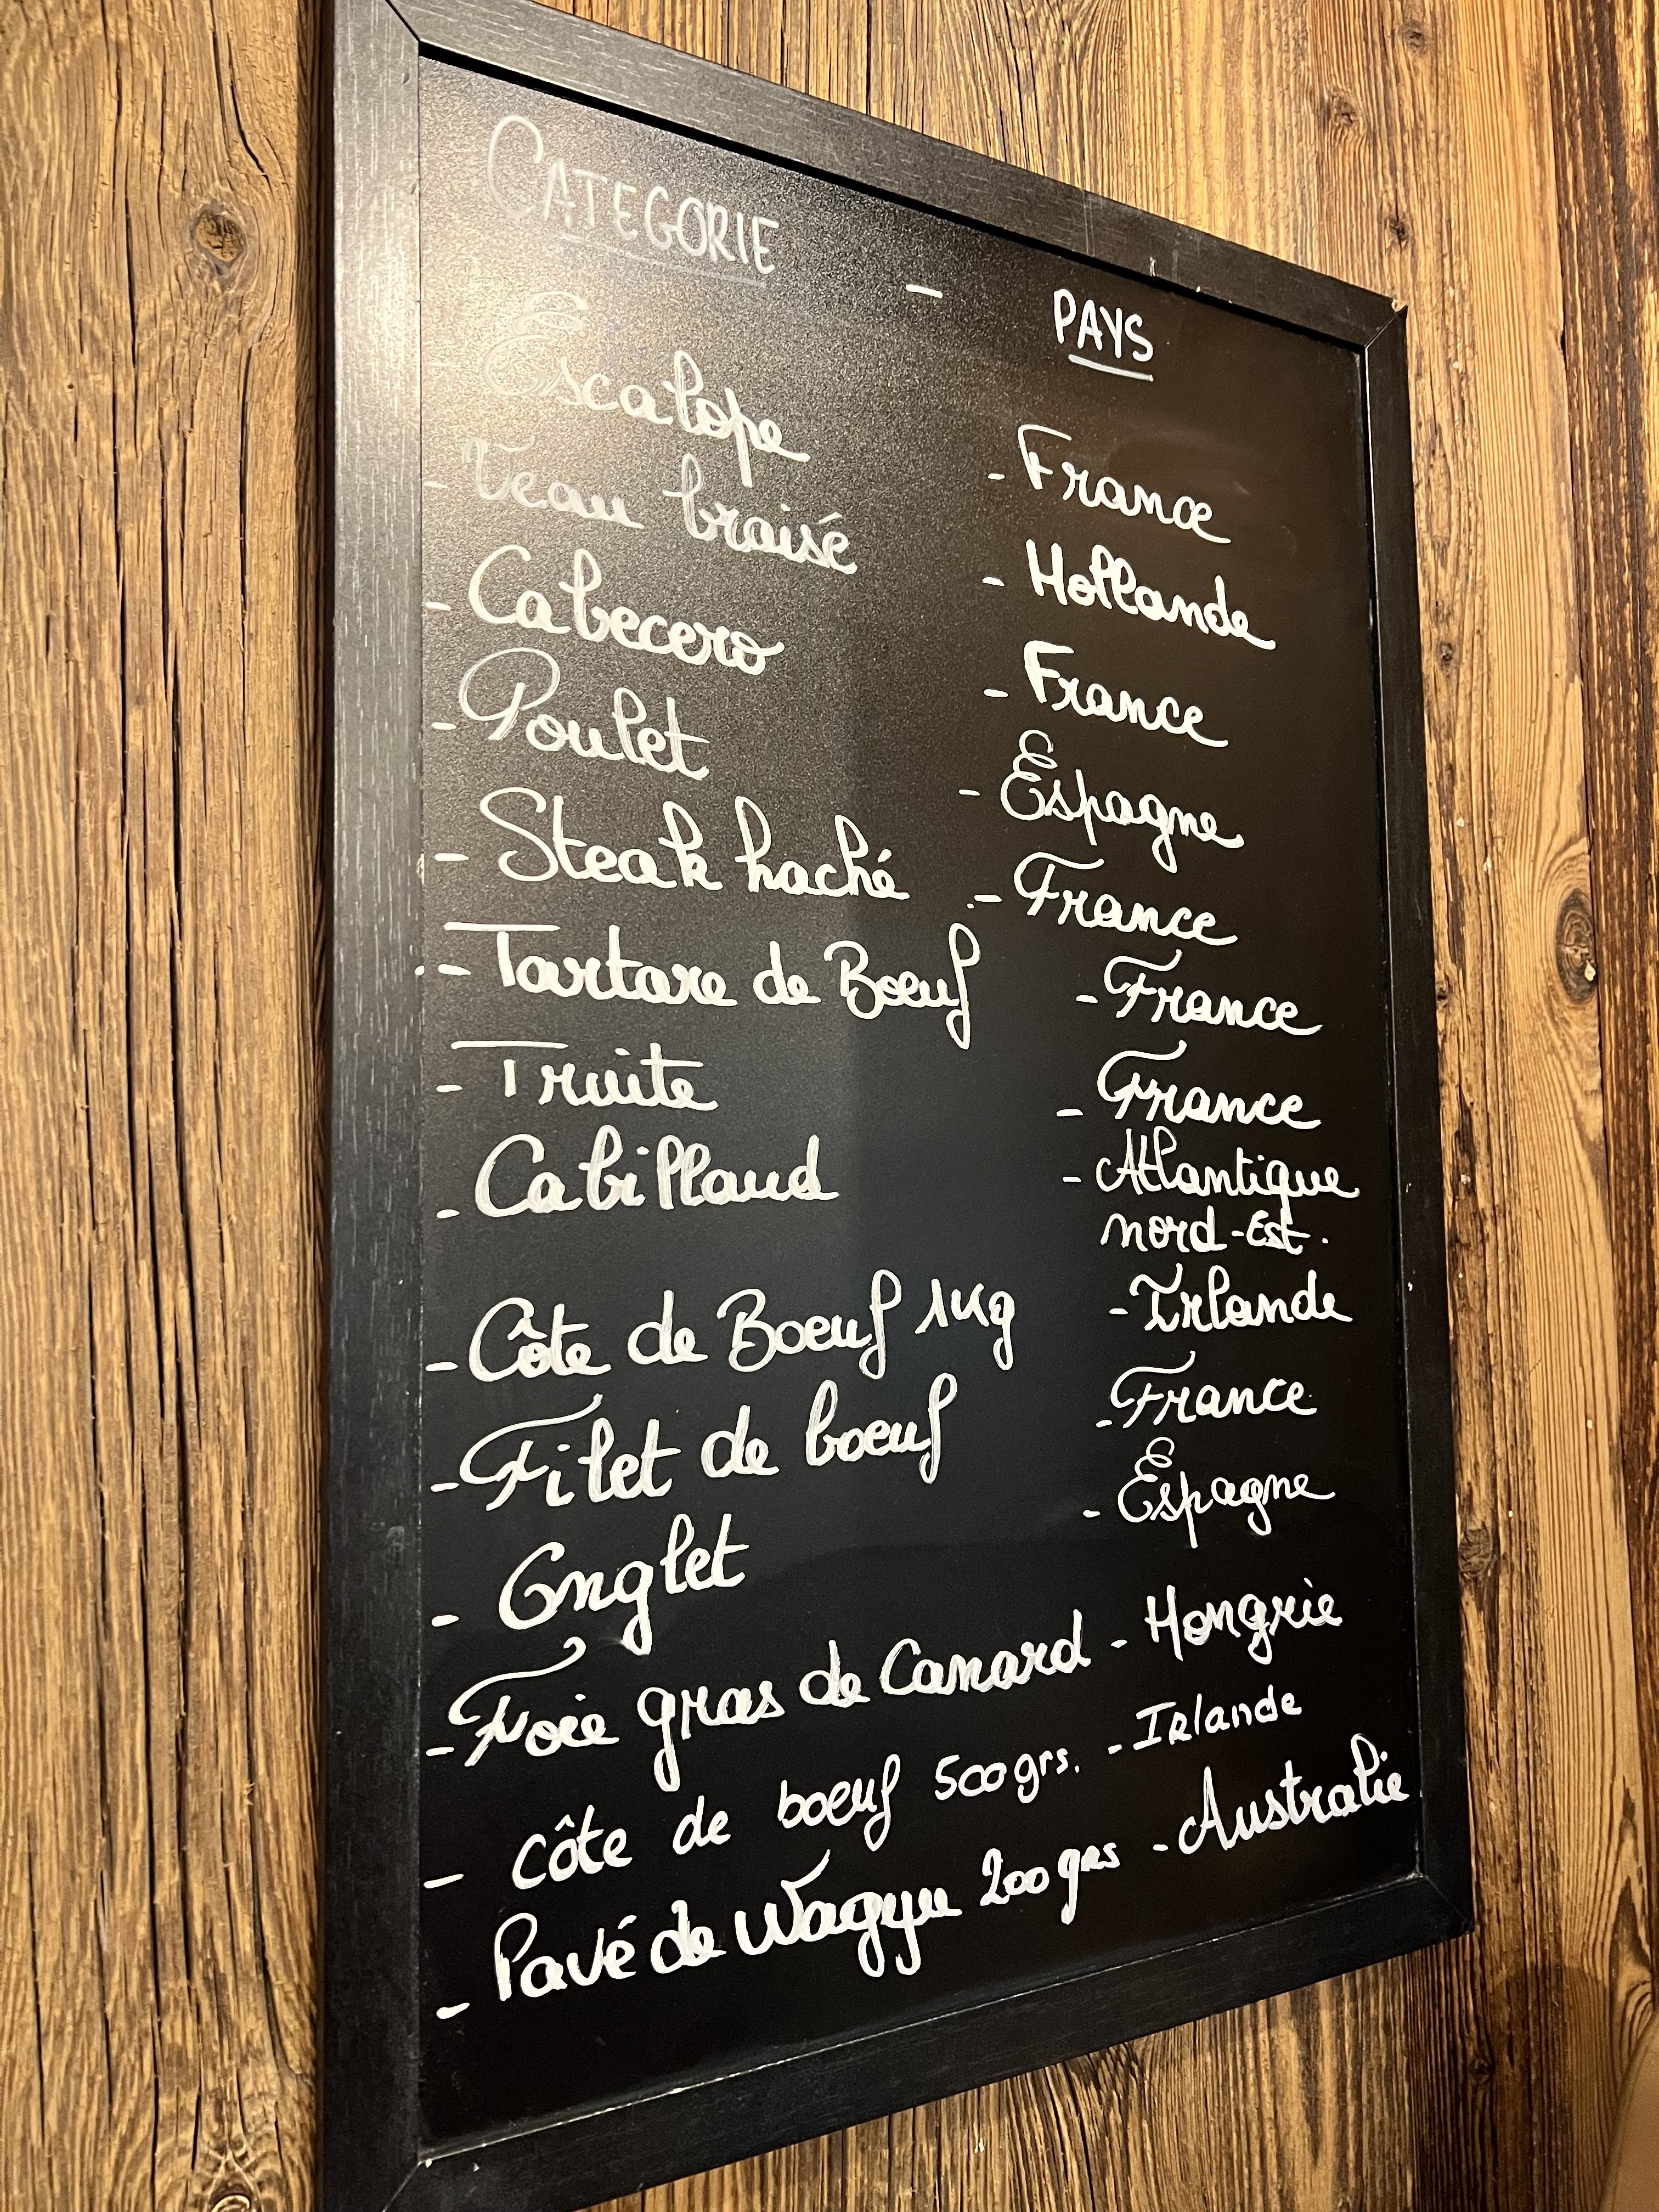 CATEGORIE - PAYS
Escalope - France
- Veau braisé - Hollande
- Cabecero - France
- Poulet - Espagne
- Steak haché - France
- Tartare de Boeuf - France
- Truite - France
- Cabillaud - Atlantique
nord-Est.
- Côte de Boeuf 1kg - Irlande
- Filet de boeuf - France
- Onglet - Espagne
- Foie gras de Canard - Hongrie
- côte de boeuf 500grs. - Irlande
- Pavé de Wagyu 200grs - Australie